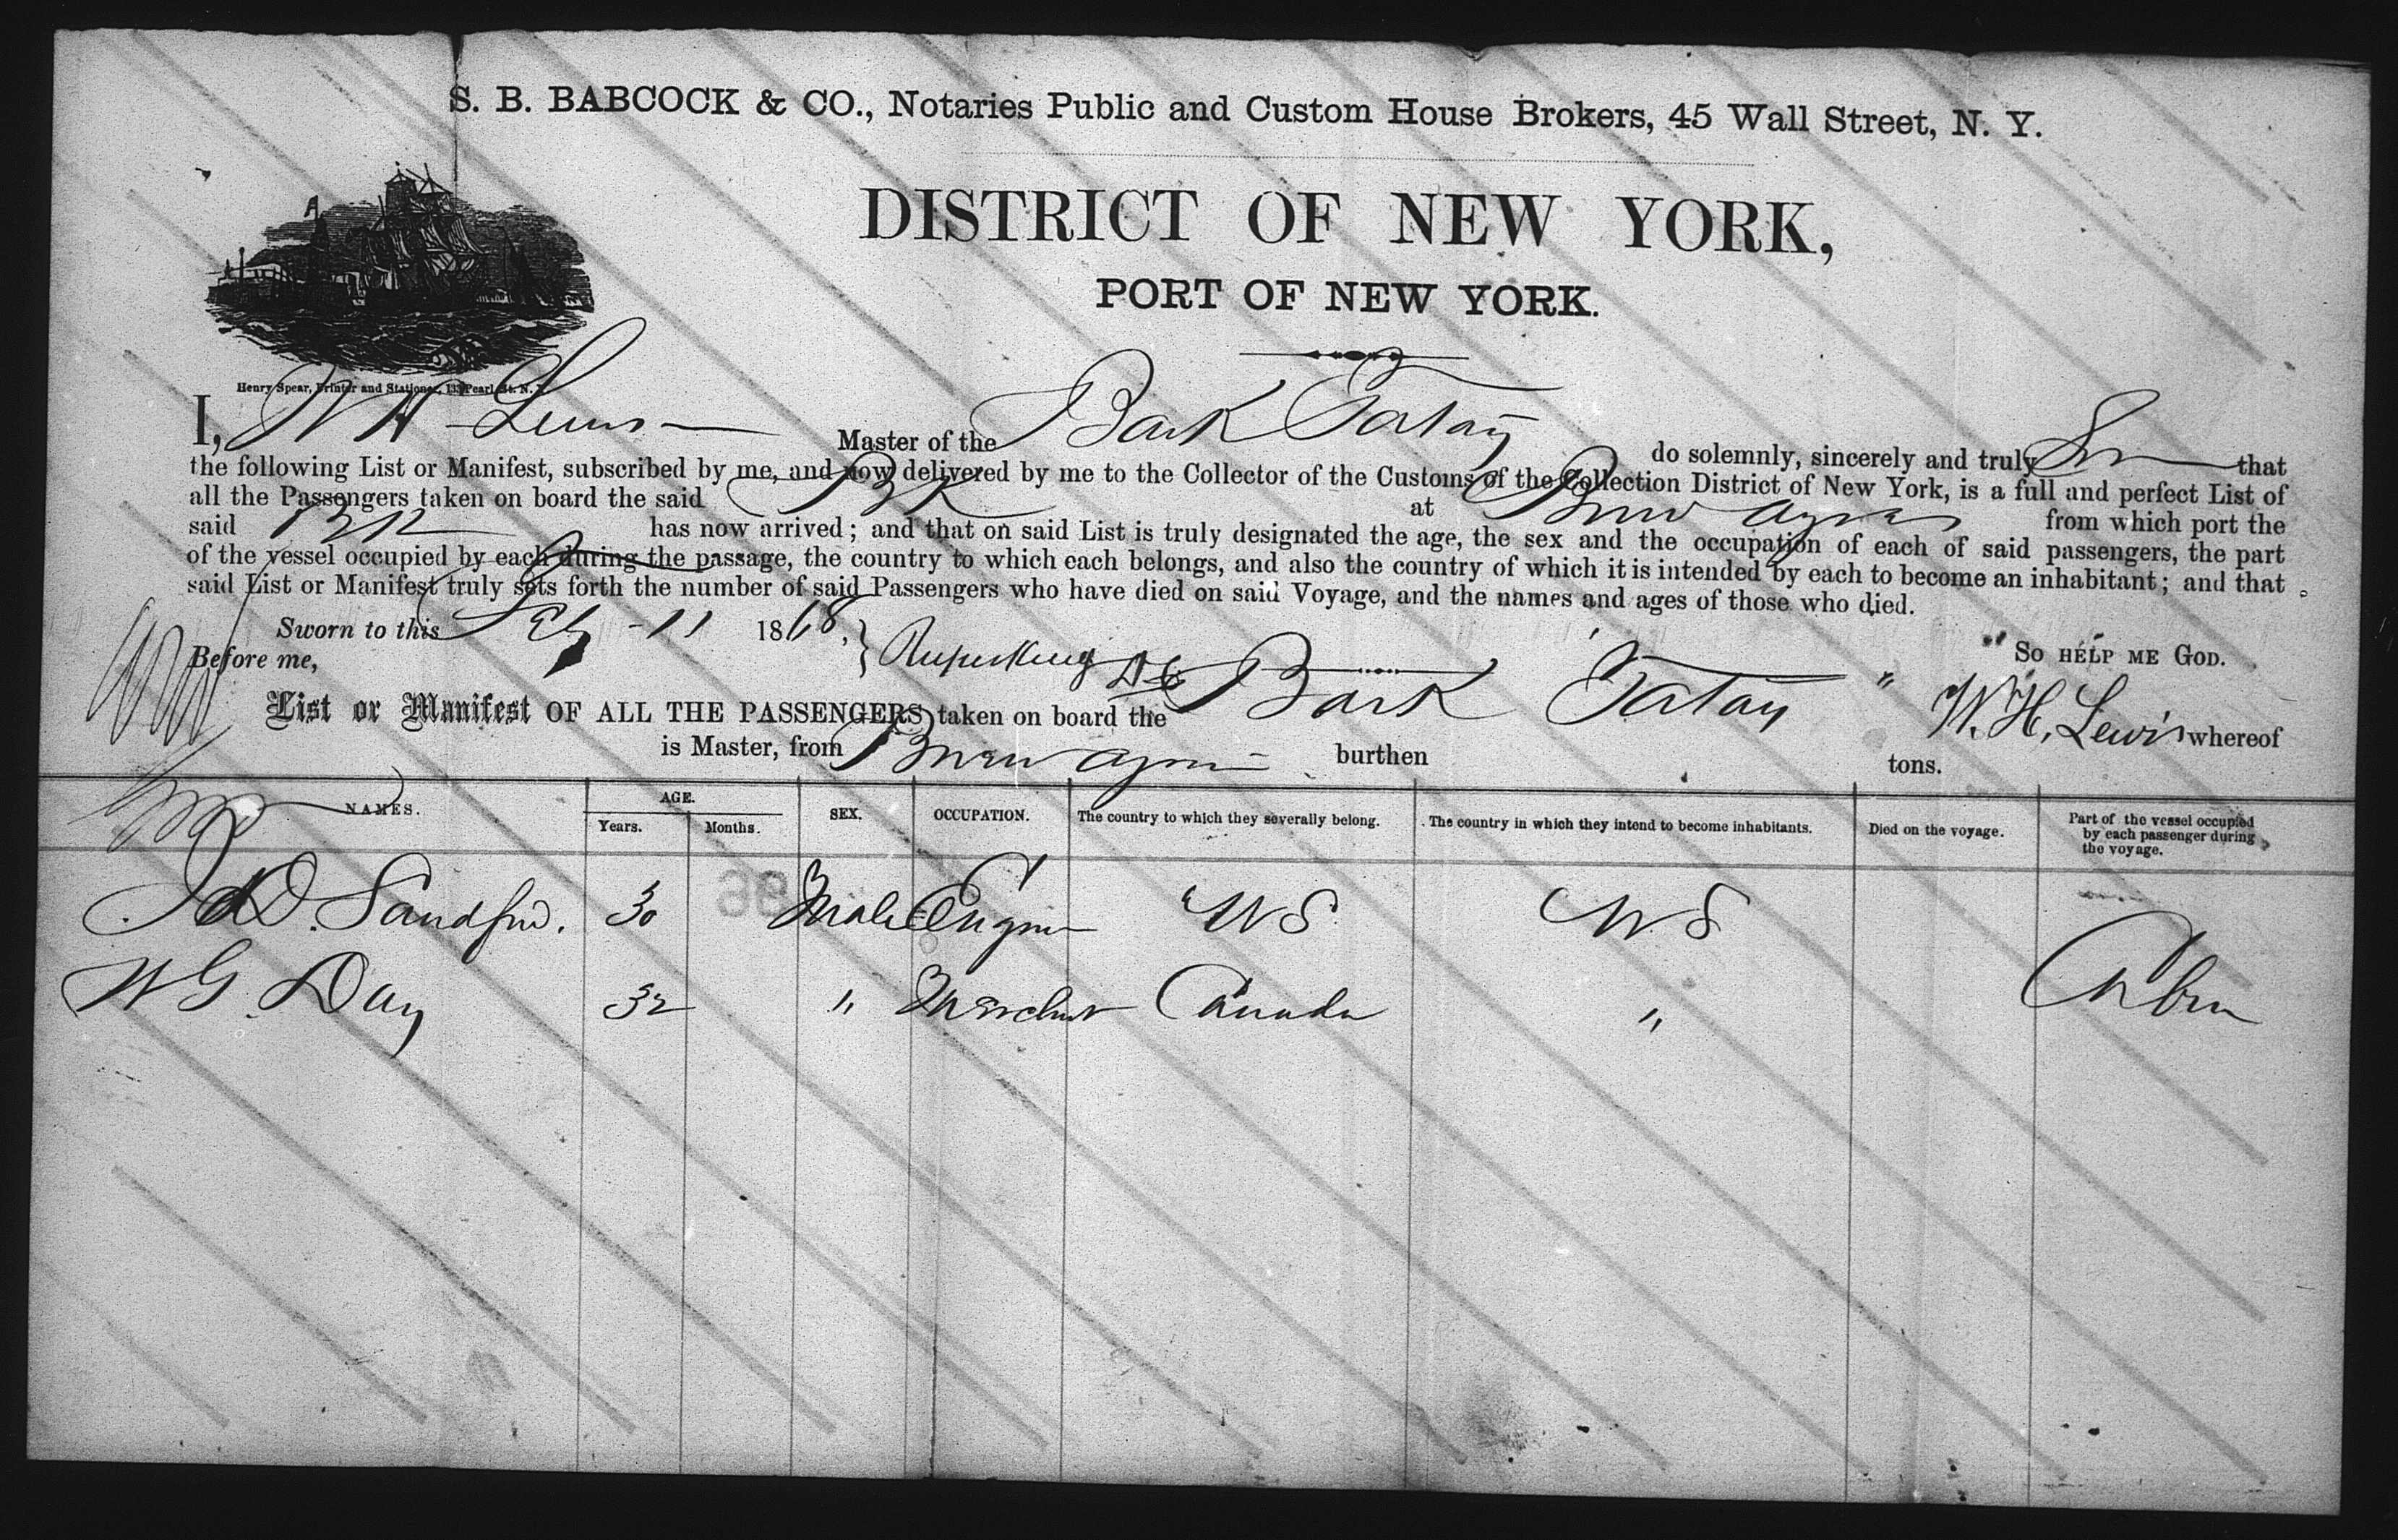 S. B. BABCOCK & CO., Notaries Public and Custom House Brokers, 45 Wall Street, N. Y.
DISTRICT OF NEW YORK,
PORT OF NEW YORK.
Henry Spear, Printer and Stationer, 113 Pearl St. N. Y.
I, W H Lewis Master of the Bark Tatay do solemnly, sincerely and truly that
the following List or Manifest, subscribed by me, and now delivered by me to the Collector of the Customs of the Collection District of New York, is a full and perfect List of
all the Passengers taken on board the said Bk at Buenos Ayres from which port the
said Bk has now arrived; and that on said List is truly designated the age, the sex and the occupation of each of said passengers, the part
of the vessel occupied by each during the passage, the country to which each belongs, and also the country of which it is intended by each to become an inhabitant; and that
said List or Manifest truly sets forth the number of said Passengers who have died on said Voyage, and the names and ages of those who died.
Sworn to this Feb 11 1868,
So HELP ME GOD.
Before me,
List or Manifest OF ALL THE PASSENGERS taken on board the Bark Tatay " W. H. Lewis whereof
is Master, from Buenos Ayres burthen tons.
NAMES. AGE. Years. Months. SEX. OCCUPATION. The country to which they severally belong. The country in which they intend to become inhabitants. Died on the voyage. Part of the vessel occupied by each passenger during the voyage.
D. Sandford. 30 Male Engineer U S U S
W G Day 32 " Merchant Canada " Cabin